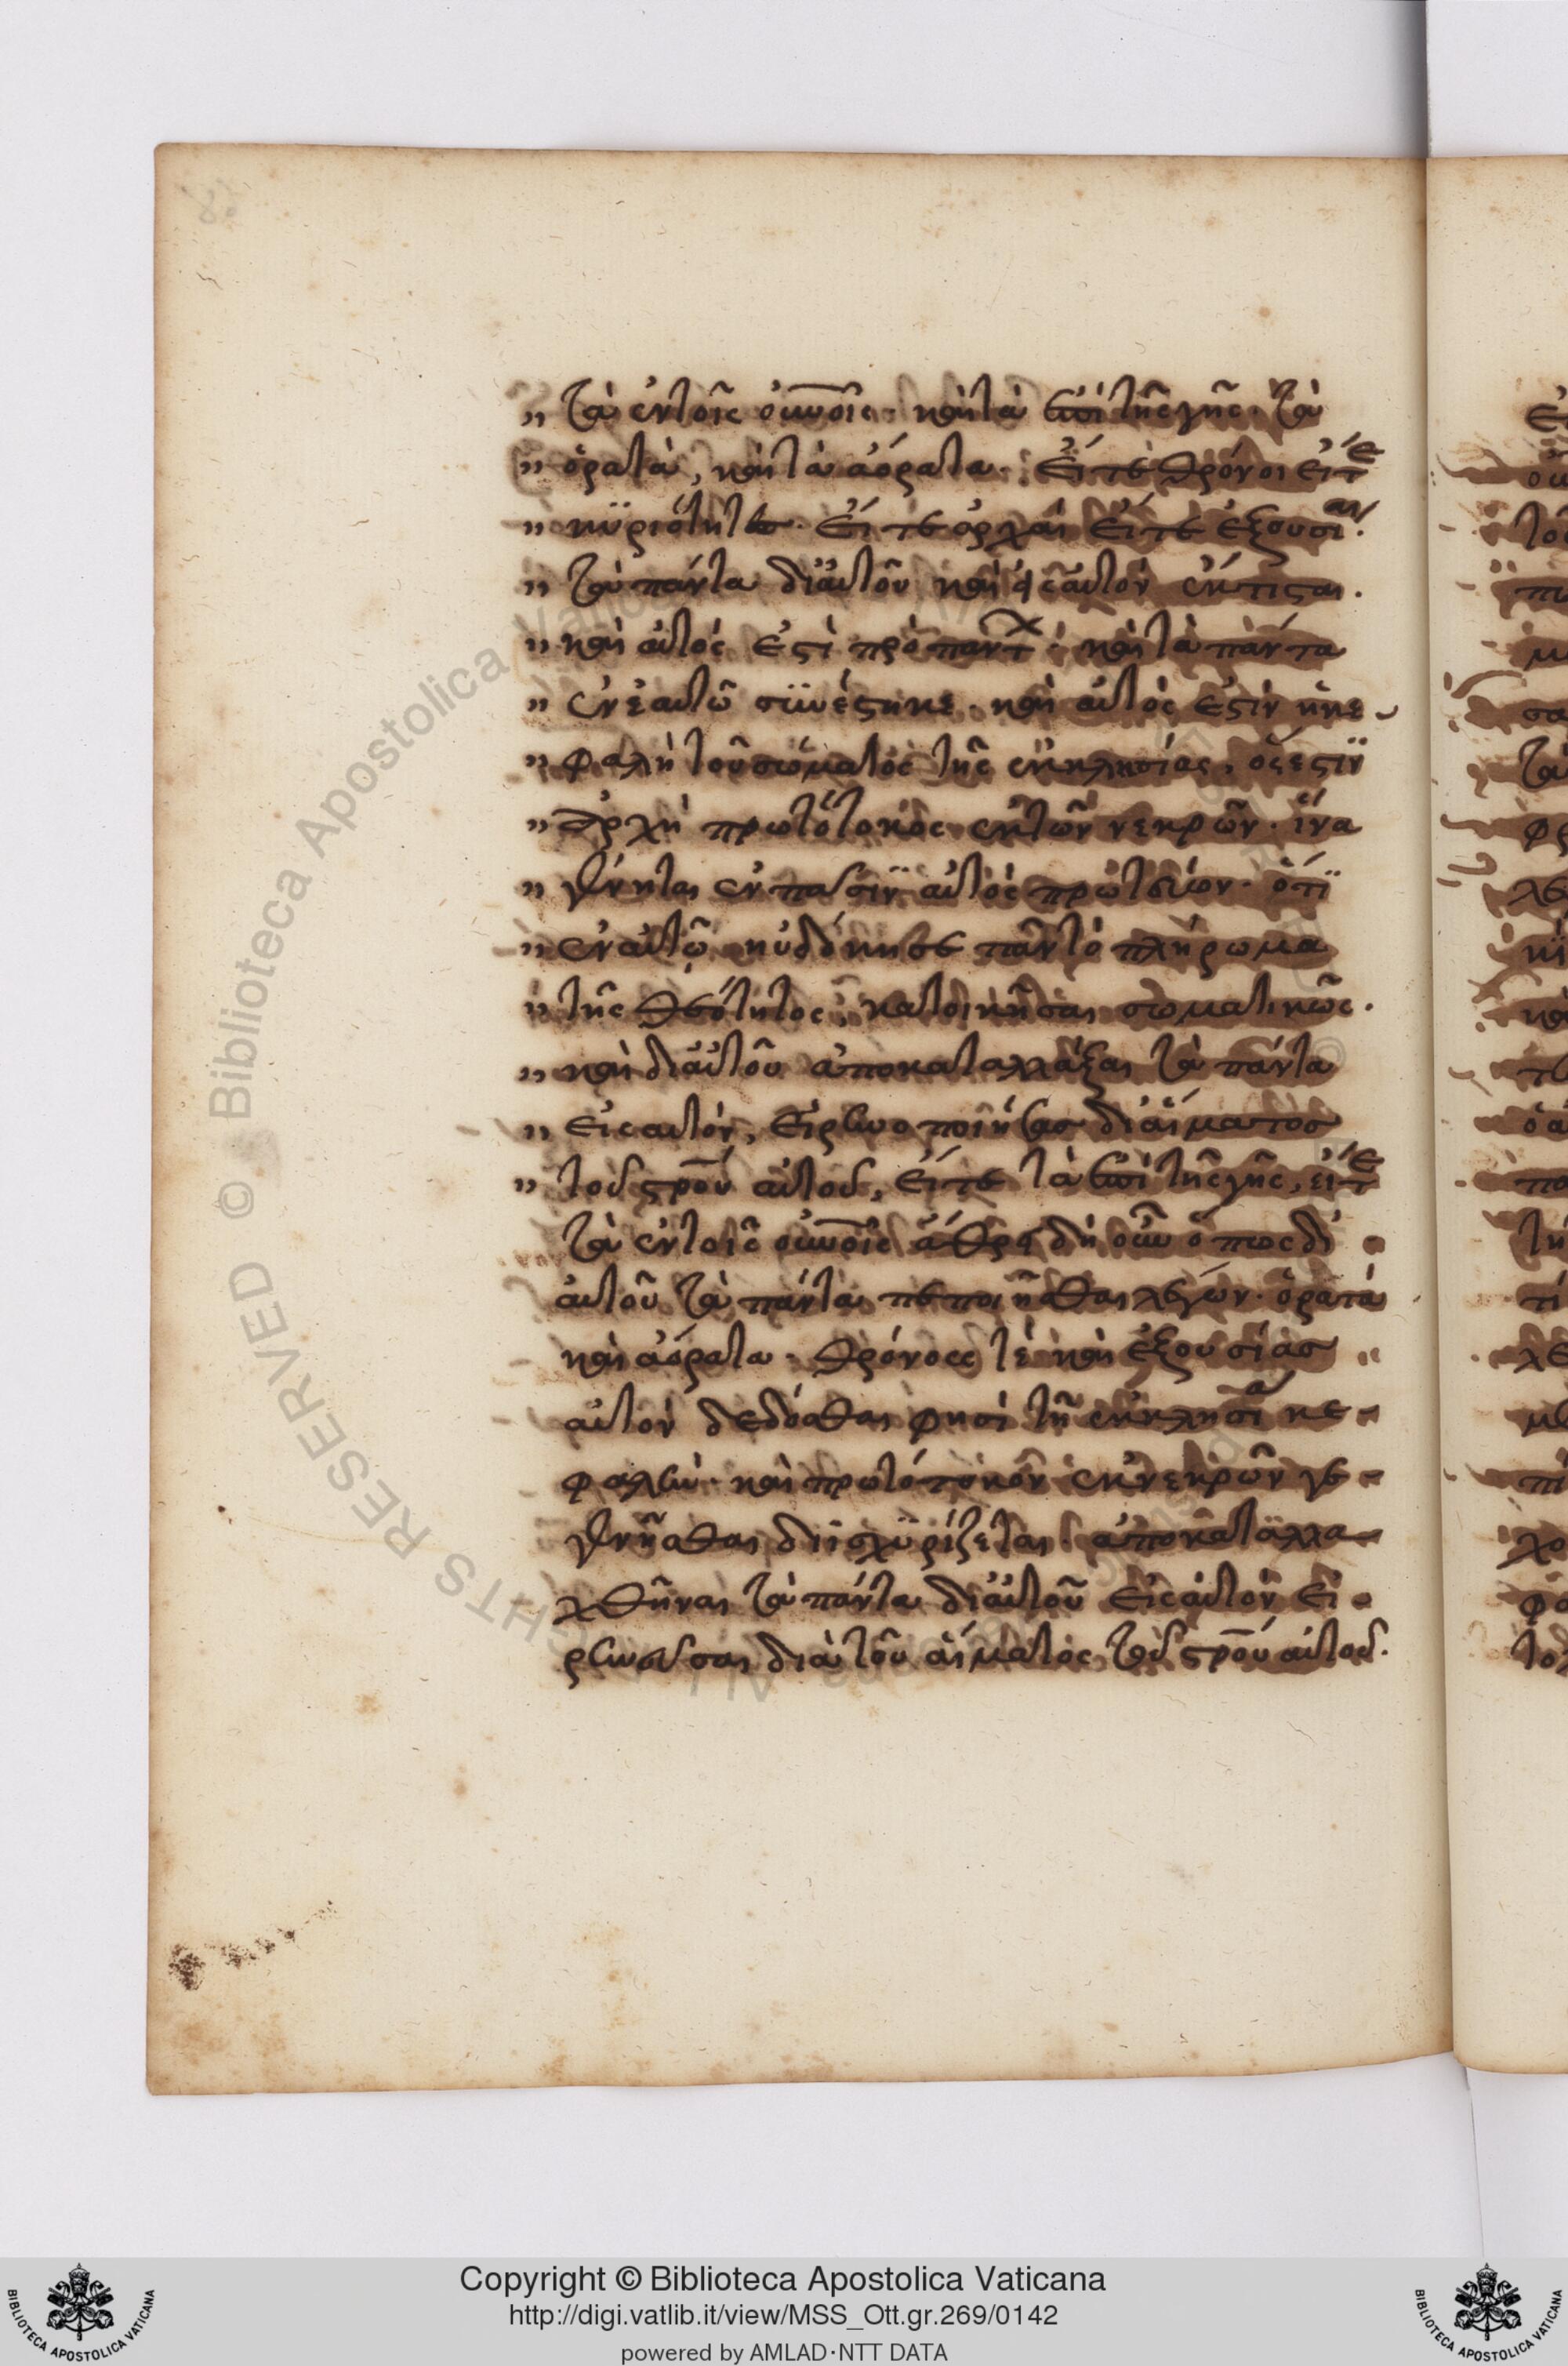 „ τὰ ἐν τοῖς οὐνοῖς· καὶ τὰ ἐπὶ τῆς γῆς· τὰ
„ ὁρατὰ, καὶ τὰ ἀόρατα· εἴτε θρόνοι εἴτε
„ κυριότητες· εἴτε ἀρχαὶ εἴτε ἐξουσίαι·
„ τὰ πάντα δι αὐτοῦ καὶ εἰς αὐτὸν ἔκτισται.
„ καὶ αὐτός ἐστὶ πρὸ πάντων· καὶ τὰ πάντα
„ ἐν ἑαυτῷ συνέστηκε· καὶ αὐτὸς ἐστὶν ἡ κε
„ φαλὴ τοῦ σώματος τῆς ἐκκλησίας, ὅς ἐστιν
„ ἀρχὴ πρωτότοκος ἐκ τῶν νεκρῶν· ἵνα
„ γένηται ἐν πᾶσιν αὐτὸς πρωτεύων· ὅτι
„ ἐν αὐτῷ ηὐδόκησε πᾶν τὸ πλήρωμα
„ τῆς θεότητος, κατοικῆσαι σωματικῶς.
„ καὶ δι αὐτοῦ ἀποκαταλλάξαι τὰ πάντα
„ εἰς αὐτόν, εἰρηνοποιήσας δι αἵματος
„ τοῦ στροῦ αὐτοῦ, εἴτε τὰ ἐπὶ τῆς γῆς, εἴτε
τὰ ἐν τοῖς οὐνοῖς ἄθρει δὴ οὖν ὅπως δι
αὐτοῦ τὰ πάντα πεποιῆσθαι λέγων· ὁρατά
καὶ ἀόρατα· θρόνους τὲ καὶ ἐξουσίας
αὐτὸν δεδόσθαι φησὶ τῇ ἐκκλησίᾳ κε
φαλήν· καὶ πρωτότοκον ἐκ νεκρῶν γε
γενῆσθαι διισχυρίζεται· ἀποκαταλλα
χθῆναι τὰ πάντα δι αὐτοῦ εἰς αὐτὸν εἰ
ρηνεῦσαι διὰ τοῦ αἵματος τοῦ στροῦ αὐτοῦ.
Copyright © Biblioteca Apostolica Vaticana
http://digi.vatlib.it/view/MSS_Ott.gr.269/0142
powered by AMLAD·NTT DATA
BIBLIOTECA APOSTOLICA VATICANA
BIBLIOTECA APOSTOLICA VATICANA